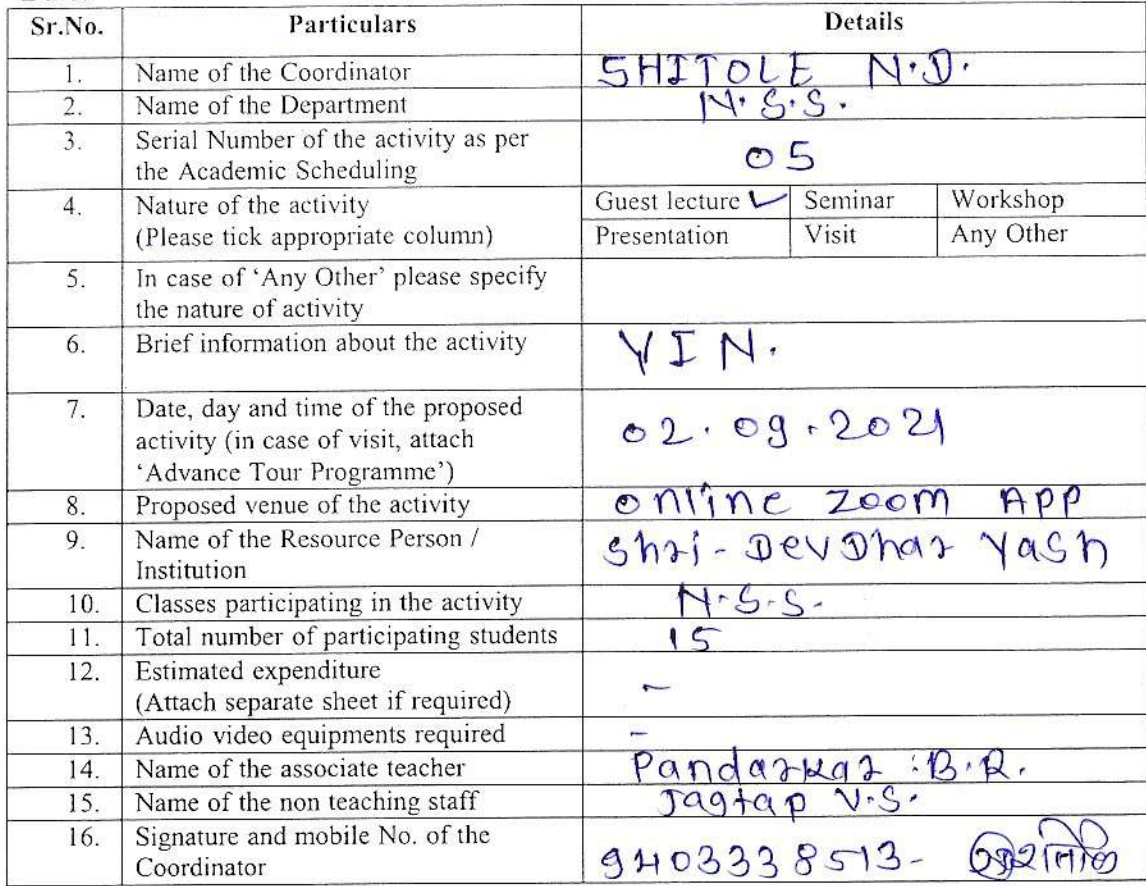 Sr.No. Particulars Details
1. Name of the Coordinator SHITOLE N.D.
2. Name of the Department N.S.S.
3. Serial Number of the activity as per
the Academic Scheduling 05
4. Nature of the activity
(Please tick appropriate column)
Guest lecture ✓ Seminar Workshop
Presentation Visit Any Other
5. In case of ‘Any Other’ please specify
the nature of activity
6. Brief information about the activity YIN.
7. Date, day and time of the proposed
activity (in case of visit, attach
‘Advance Tour Programme’)
02.09.2021
8. Proposed venue of the activity online zoom App
9. Name of the Resource Person /
Institution
Shri-DevDhar Yash
10. Classes participating in the activity N.S.S.
11. Total number of participating students 15
12. Estimated expenditure
(Attach separate sheet if required)
-
13. Audio video equipments required -
14. Name of the associate teacher Pandarkar B.R.
15. Name of the non teaching staff Jagtap V.S.
16. Signature and mobile No. of the
Coordinator
9403338513-